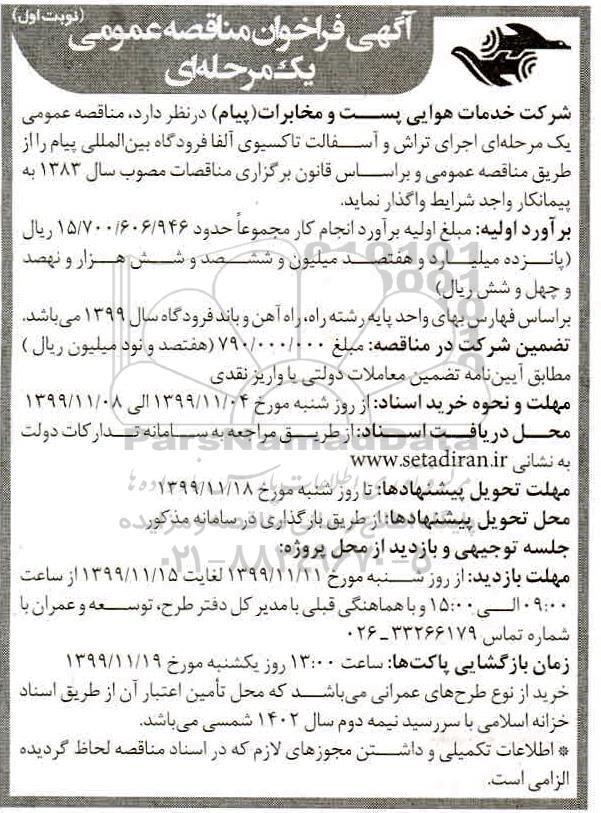 (نوبت اول)
آگهی فراخوان مناقصه عمومی
یک مرحله‌ای
شرکت خدمات هوایی پست و مخابرات(پیام) درنظر دارد، مناقصه عمومی
یک مرحله‌ای اجرای تراش و آسفالت تاکسیوی آلفا فرودگاه بین‌المللی پیام را از
طریق مناقصه عمومی و براساس قانون برگزاری مناقصات مصوب سال ۱۳۸۳ به
پیمانکار واجد شرایط واگذار نماید.
برآورد اولیه: مبلغ اولیه برآورد انجام کار مجموعاً حدود ۱۵/۷۰۰/۶۰۶/۹۴۶ ریال
(پانزده میلیارد و هفتصد میلیون و ششصد و شش هزار و نهصد
و چهل و شش ریال)
براساس فهارس بهای واحد پایه رشته راه، راه آهن و باند فرودگاه سال ۱۳۹۹ می‌باشد.
تضمین شرکت در مناقصه: مبلغ ۷۹۰/۰۰۰/۰۰۰ (هفتصد و نود میلیون ریال )
مطابق آیین‌نامه تضمین معاملات دولتی یا واریز نقدی
مهلت و نحوه خرید اسناد: از روز شنبه مورخ ۱۳۹۹/۱۱/۰۴ الی ۱۳۹۹/۱۱/۰۸
محل دریافت اسناد: از طریق مراجعه به سامانه تدارکات دولت
به نشانی www.setadiran.ir
مهلت تحویل پیشنهادها: تا روز شنبه مورخ ۱۳۹۹/۱۱/۱۸
محل تحویل پیشنهادها: از طریق بارگذاری در سامانه مذکور
جلسه توجیهی و بازدید از محل پروژه:
مهلت بازدید: از روز شنبه مورخ ۱۳۹۹/۱۱/۱۱ لغایت ۱۳۹۹/۱۱/۱۵ از ساعت
۰۹:۰۰ الی ۱۵:۰۰ و با هماهنگی قبلی با مدیر کل دفتر طرح، توسعه و عمران با
شماره تماس ۳۳۲۶۶۱۷۹-۰۲۶
زمان بازگشایی پاکت‌ها: ساعت ۱۳:۰۰ روز یکشنبه مورخ ۱۳۹۹/۱۱/۱۹
خرید از نوع طرح‌های عمرانی می‌باشد که محل تأمین اعتبار آن از طریق اسناد
خزانه اسلامی با سررسید نیمه دوم سال ۱۴۰۲ شمسی می‌باشد.
* اطلاعات تکمیلی و داشتن مجوزهای لازم که در اسناد مناقصه لحاظ گردیده
الزامی است.
ParsNamadData
۰۲۱-۸۸۳۴۹۶۷۰-۵